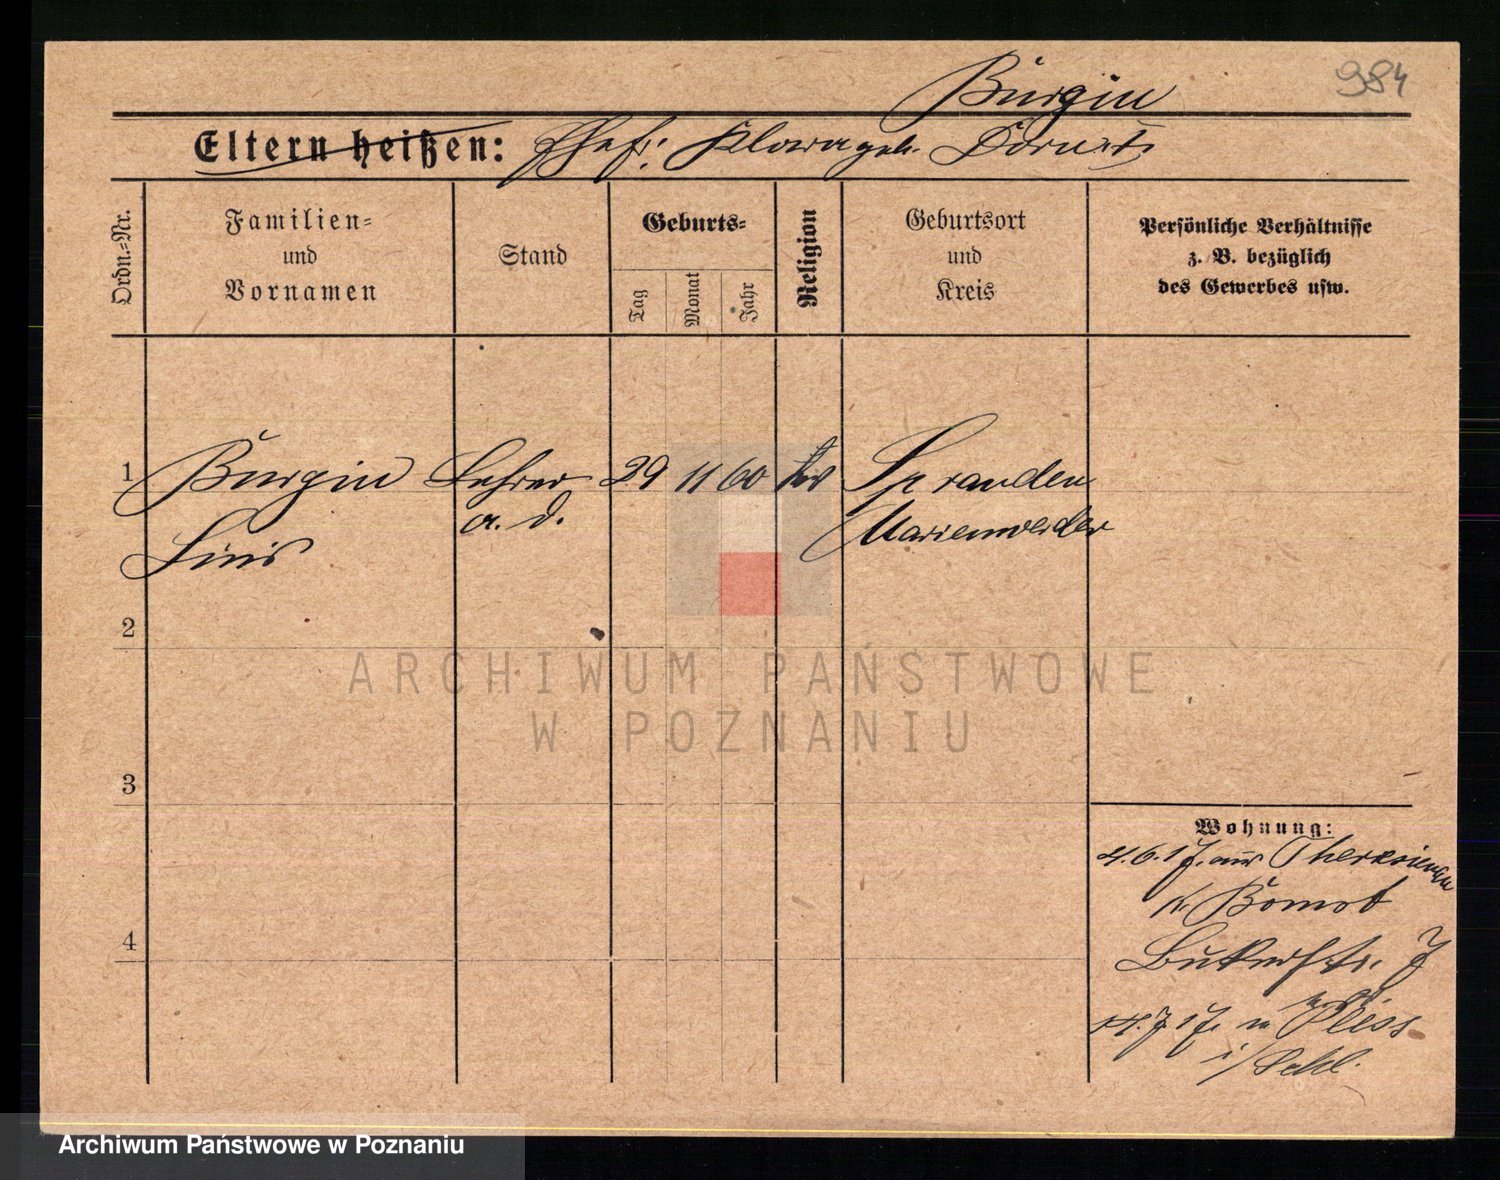 Burgin
984
Eltern heißen: Ehefr: Klara geb.
Ordn.-Nr.
Familien-
und
Vornamen
Stand
Geburts-
Tag
Monat
Jahr
Religion
Geburtsort
und
Kreis
Persönliche Verhältnisse
z. B. bezüglich
des Gewerbes usw.
1
Burgin Lehrer 29 11 60 Spranden
a. D. Marienwerder
2
ARCHIWUM PAŃSTWOWE
W POZNANIU
3
Wohnung:
4.6.17. aus
K. Bomst
4
Bukerstr. 7
14.7.17. n. Pless
i/Schl.
Archiwum Państwowe w Poznaniu